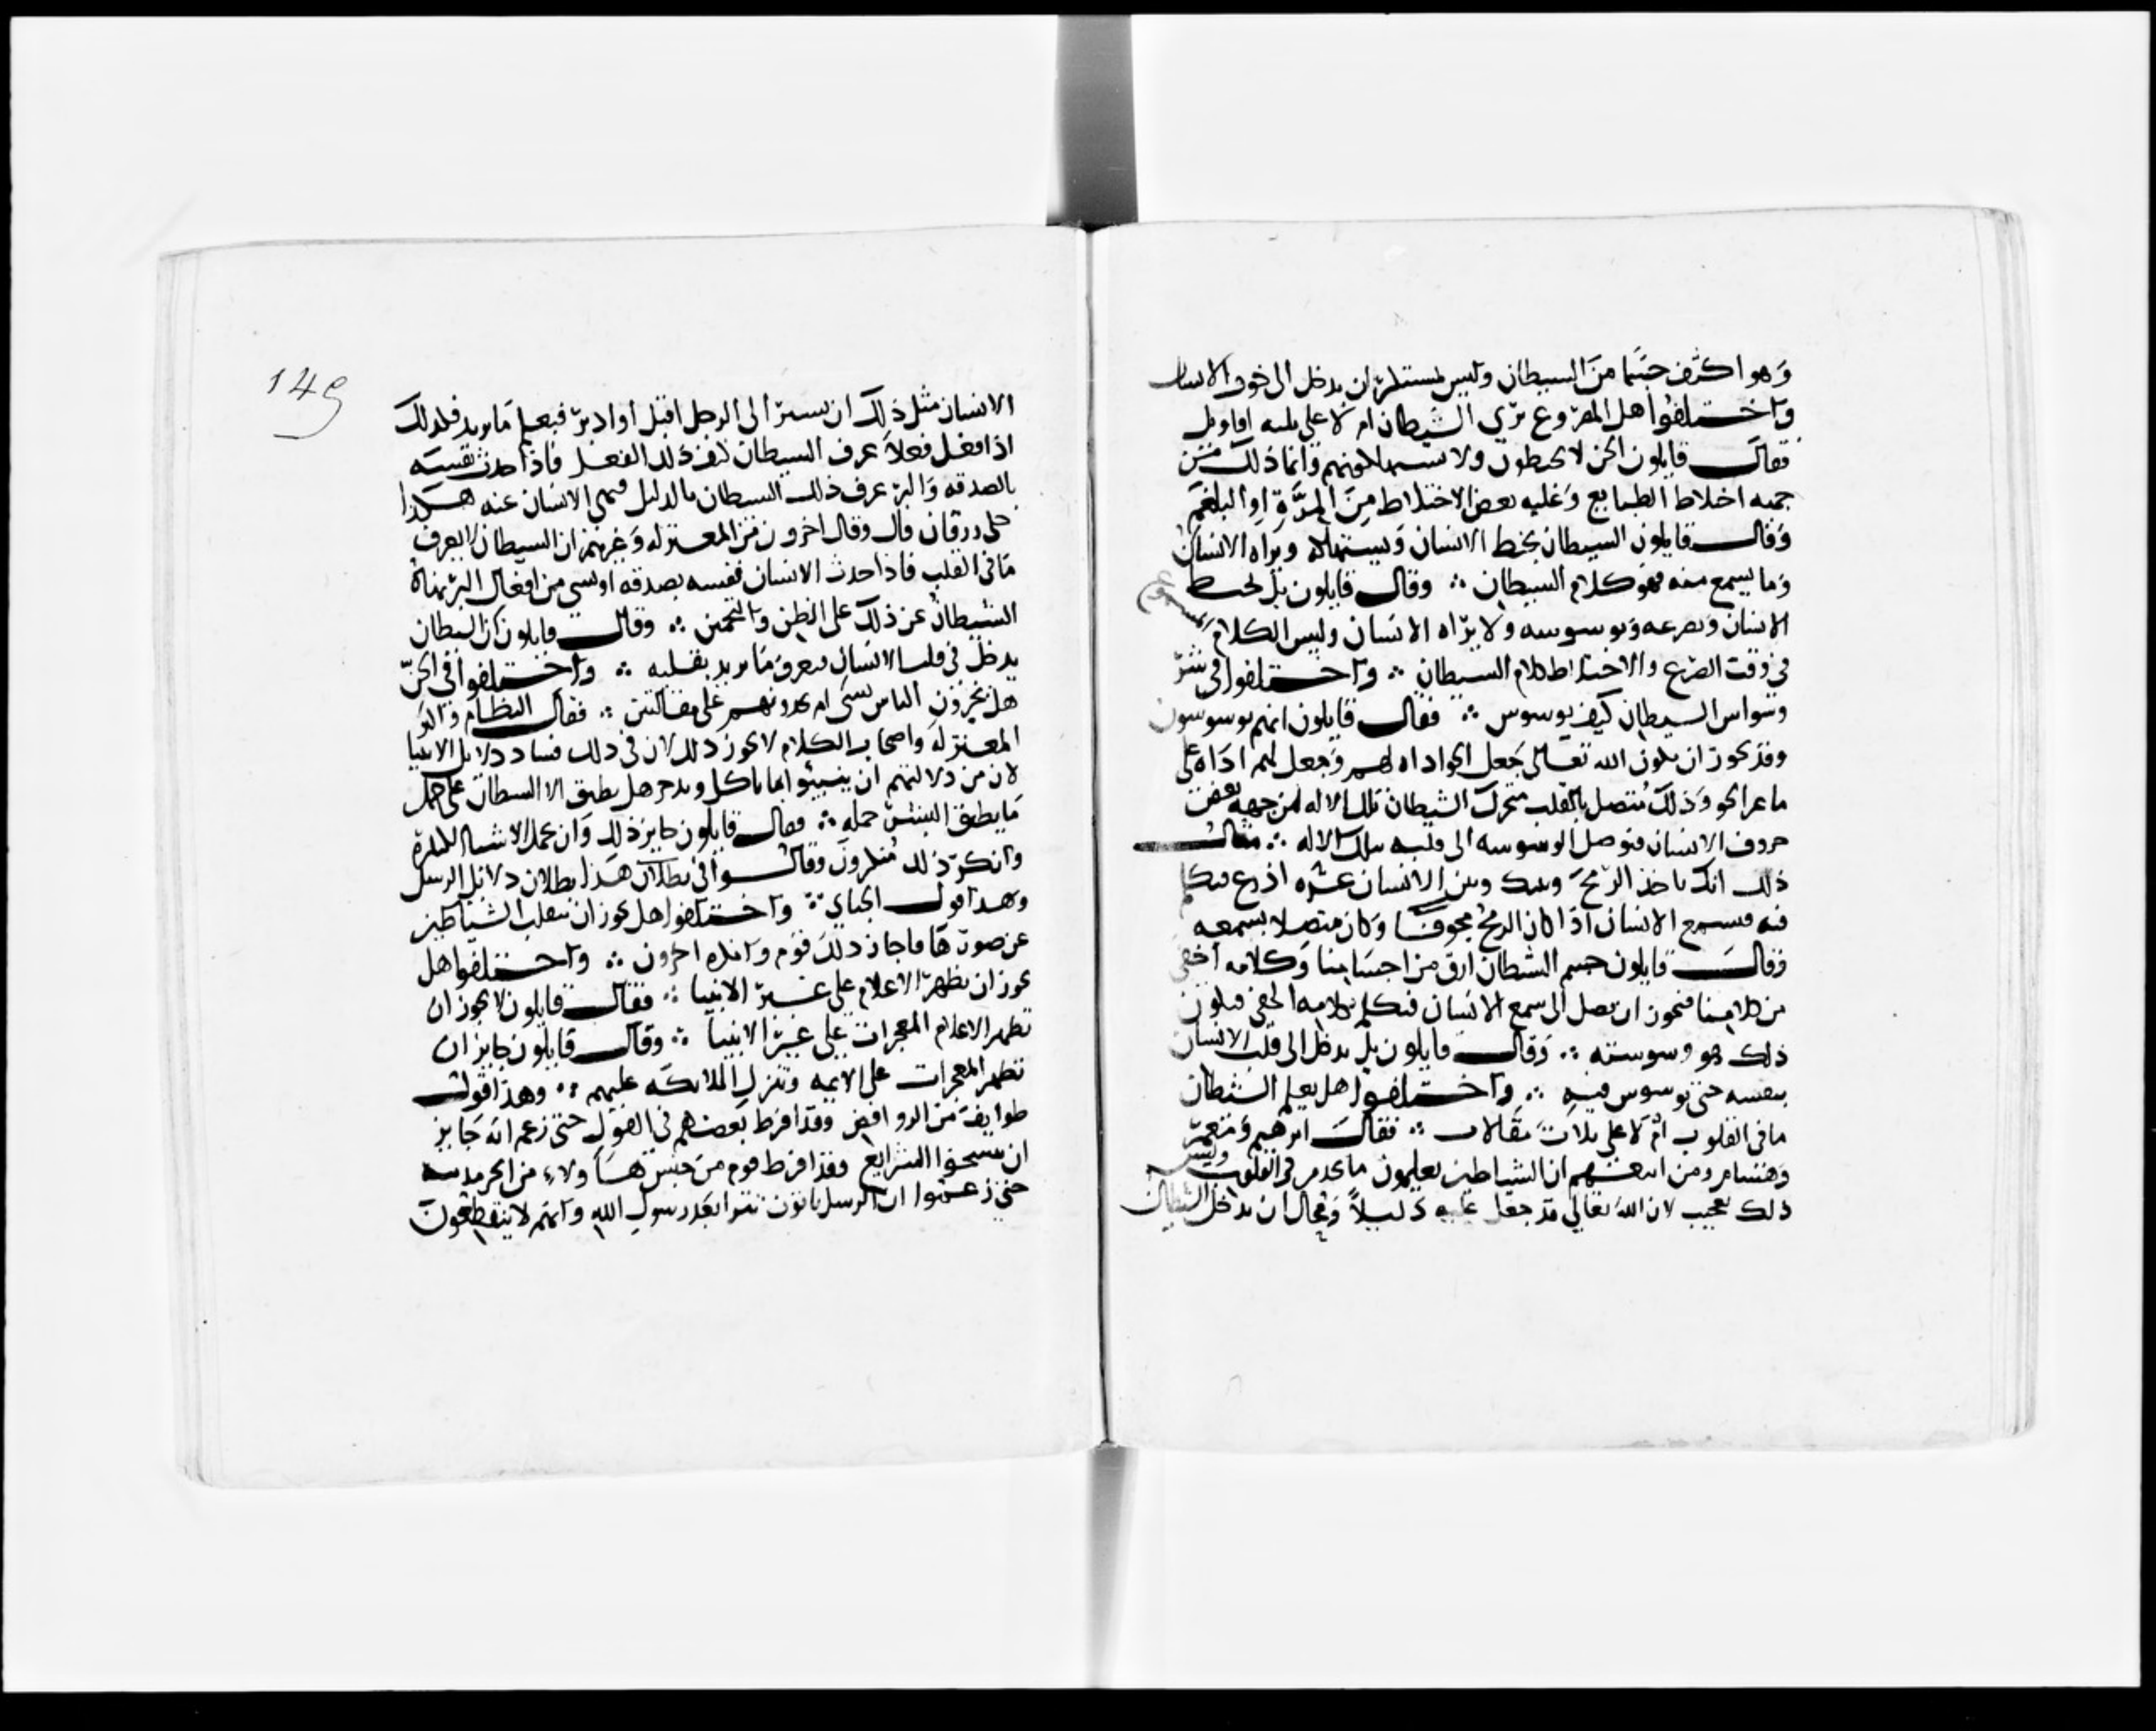 وهو اكثف جسما من الشيطان وليس بمستنكر ان يدخل الى جوف الانسان
واختلفوا هل المصروع يرى الشيطان ام لا على ثلثه اقاويل
فقال قايلون الجن لا يخبطون ولا يستهلكونهم وانما ذلك من
جهه اختلاط الطبايع وغلبه بعض الاخلاط من المرة او البلغم
وقال قايلون الشيطان يخبط الانسان ويستهلكه ويراه الانسان
وما يسمع منه فهو كلام الشيطان ؞ وقال قايلون بل يخبط
الانسان ويصرعه ويوسوسه ولا يراه الانسان وليس الكلام المسموع
في وقت الصرع والاختلاط كلام الشيطان ؞ واختلفوا في
وسواس الشيطان كيف يوسوس ؞ فقال قايلون انهم يوسوسون
وقد يجوز ان يكون الله تعالى جعل الجو اداه لهم وجعل لهم اداه
ما غير الجو وذلك متصل بالقلب متحرك الشيطان تلك الاله من جهه بعض
حروف الانسان فتوصل الوسوسه الى قلبه بتلك الاله ؞ مثال
ذلك انك تاخذ الرمح وبينك وبين الانسان عشره اذرع فتكلم
فيه فيسمع الانسان اذا كان الرمح مجوفا وكان متصلا بسمعه
وقال قايلون جسم الشيطان ارق من اجسامنا وكلامه اخفى
من كلامنا فيجوز ان يصل الى سمع الانسان فيتكلم بكلامه الخفى فيكون
ذلك هو وسوسته ؞ وقال قايلون بل يدخل الى قلب الانسان
بنفسه حتى يوسوس فيه ؞ واختلفوا هل يعلم الشيطان
ما في القلوب ام لا على ثلاث مقالات ؞ فقال ابرهيم ومعمر
وهشام ومن اتبعهم ان الشياطين يعلمون ما يحدث في القلوب وليس
ذلك بعجيب لان الله تعالى قد جعل عليه دليلا ومحال ان يدخل الشيطان
149
الانسان مثل ذلك ان تشير الى الرجل اقبل او ادبر فيعلم ما تريد فكذلك
اذا فعل فعلا عرف الشيطان كيف ذلك الفعل فاذا حدث نفسه
بالصدقه والبر عرف ذلك الشيطان بالدليل فنهى الانسان عنه هكذا
حكى زرقان قال وقال اخرون من المعتزله وغيرهم ان الشيطان لا يعرف
ما في القلب فاذا حدث الانسان نفسه بصدقه او بشي من افعال البر نهاه
الشيطان عن ذلك على الظن والتخمين ؞ وقال قايلون ان الشيطان
يدخل في قلب الانسان فيعرف ما يريد بقلبه ؞ واختلفوا في الجن
هل يخبرون الناس بشي ام يخدمونهم على مقالتين ؞ فقال النظام واكثر
المعتزله واصحاب الكلام لا يجوز ذلك لان في ذلك فساد دلايل الانبيا
لان من دلالتهم ان ينبيوا بما ناكل وندخر هل يطيق الا الشيطان على حمل
ما يطيق البشر حمله ؞ فقال قايلون جايز ذلك وان يحمل الاشيا الكثيرة
وانكر ذلك منكرون وقالوا في بطلان هذا بطلان دلايل الرسل
وهذا قول الجباي ؞ واختلفوا هل يجوز ان تنقلب الشياطين
عن صورتها فاجاز ذلك قوم وانكره اخرون ؞ واختلفوا هل
يجوز ان تظهر الاعلام على غير الانبيا ؞ فقال قايلون لا يجوز ان
تظهر الاعلام المعجزات على غير الانبيا ؞ وقال قايلون جايز ان
تظهر المعجزات على الايمه وتنزل الملائكه عليهم ؞ وهذا قول
طوايف من الروافض وقد افرط بعضهم في القول حتى زعم انه جايز
ان ينسخوا الشرايع وقد افرط قوم من جنس هاولاء من الخرمدينيه
حتى زعموا ان الرسل ياتون تترا بعد رسول الله وانهم لا ينقطعون